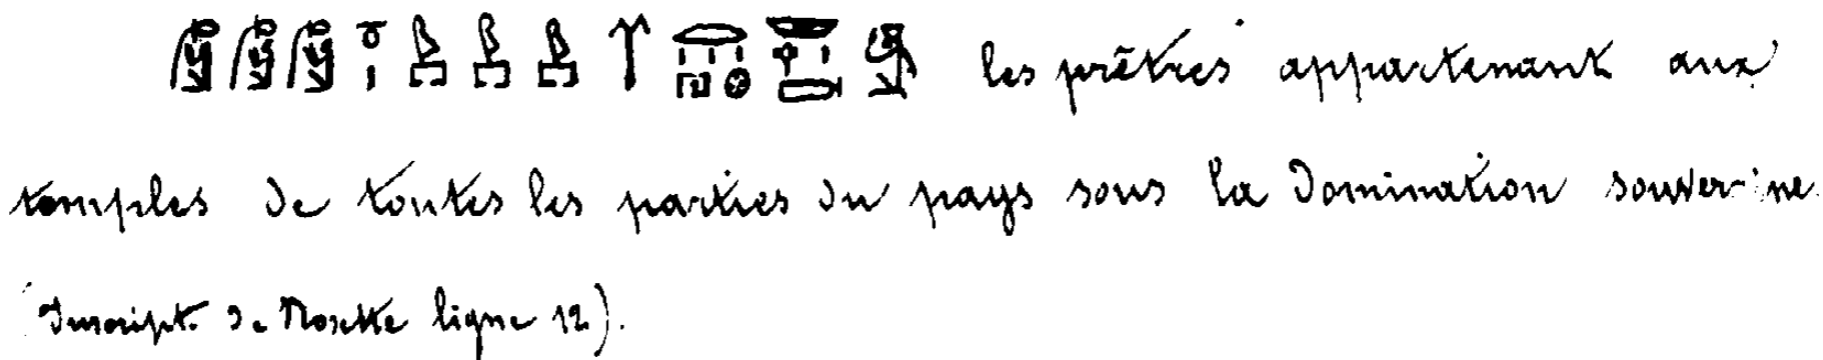 les prêtres appartenant aux
temples de toutes les parties du pays sous la domination souveraine
(Inscript. de Rosette ligne 12).